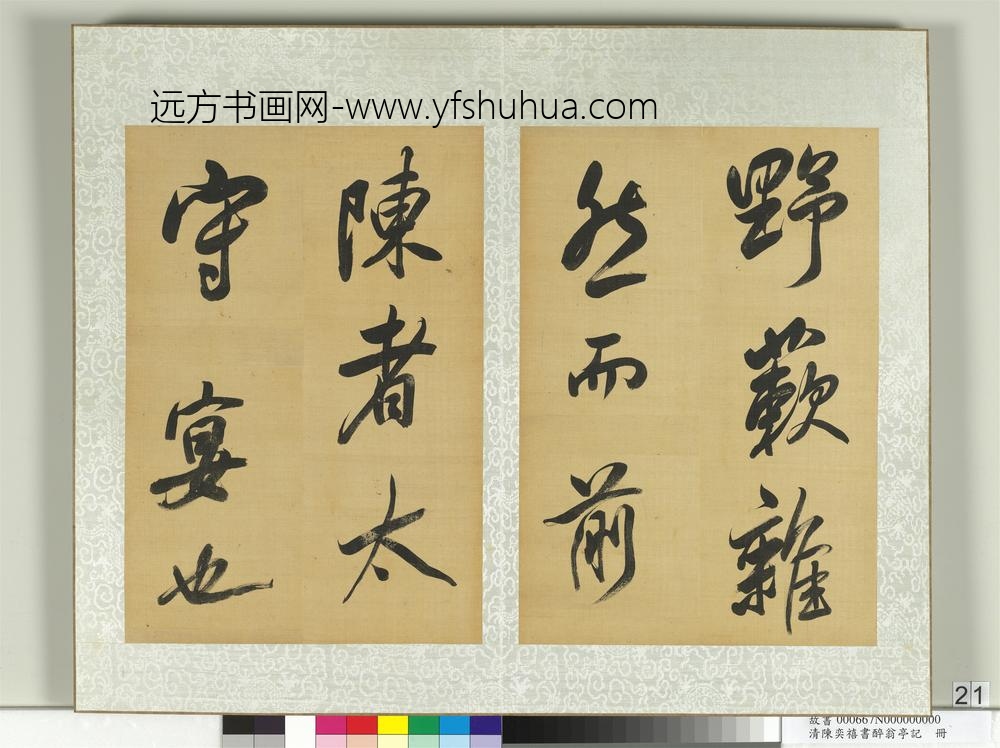 远方书画网-www.yfshuhua.com
野蔌雜
然而前
陳者太
守宴也
21
故書 000667N000000000
清陳奕禧書醉翁亭記 冊